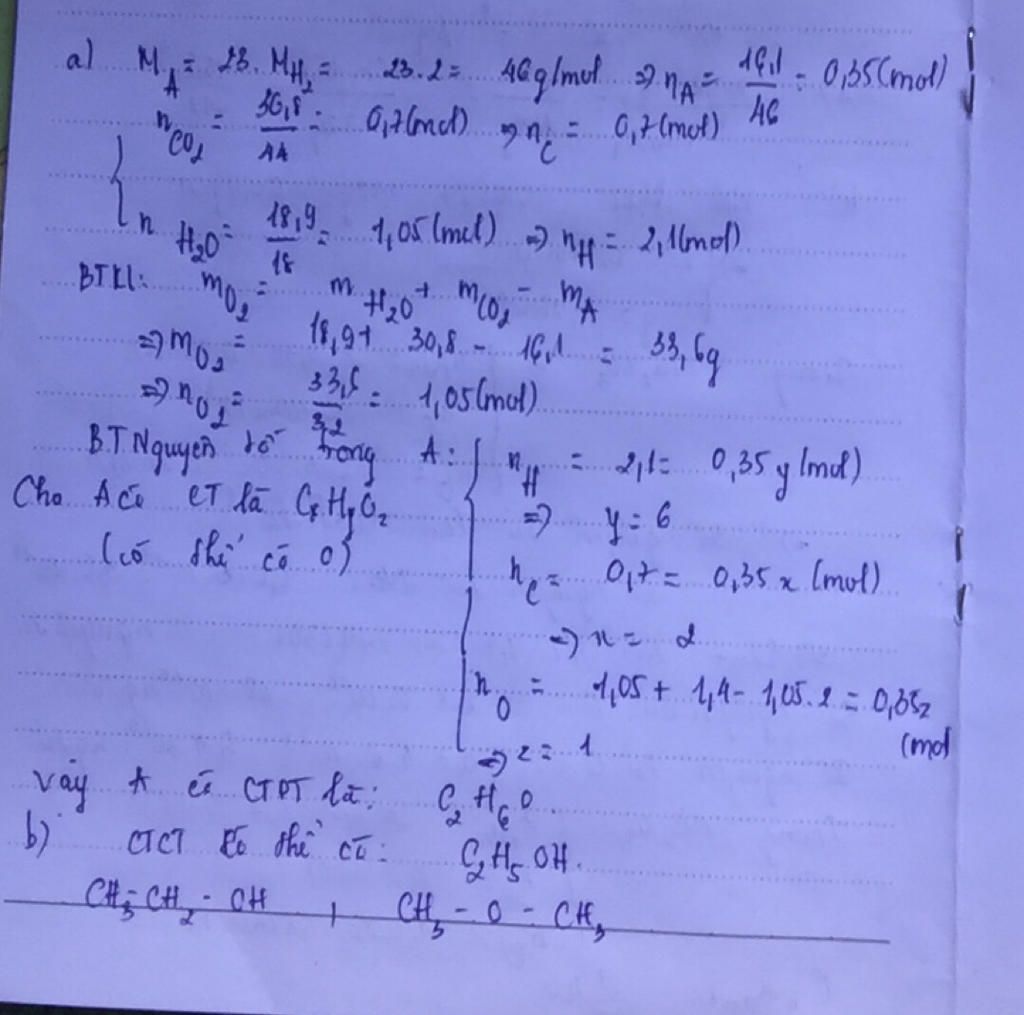 a) M_A = 23. M_H₂ = 23.2 = 46g/mol ⇒ n_A = 16,1/46 = 0,35(mol)
n_CO₂ = 30,8/44 = 0,7(mol) ⇒ n_C = 0,7(mol)
n_H₂O = 18,9/18 = 1,05(mol) ⇒ n_H = 2,1(mol)
BTKL: m_O₂ = m_H₂O + m_CO₂ - m_A
⇒ m_O₂ = 18,9 + 30,8 - 16,1 = 33,6g
⇒ n_O₂ = 33,6/32 = 1,05(mol)
BT Nguyên tố trong A: n_H = 2,1 = 0,35y(mol)
Cho A có CT là CxHyOz
⇒ y = 6
(có thể có O)
n_C = 0,7 = 0,35x (mol)
⇒ x = 2
n_O = 1,05 + 1,4 - 1,05.2 = 0,35z (mol
⇒ z = 1
Vậy A có CTPT là: C₂H₆O
b) CTCT có thể có: C₂H₅OH.
CH₃-CH₂-OH , CH₃-O-CH₃